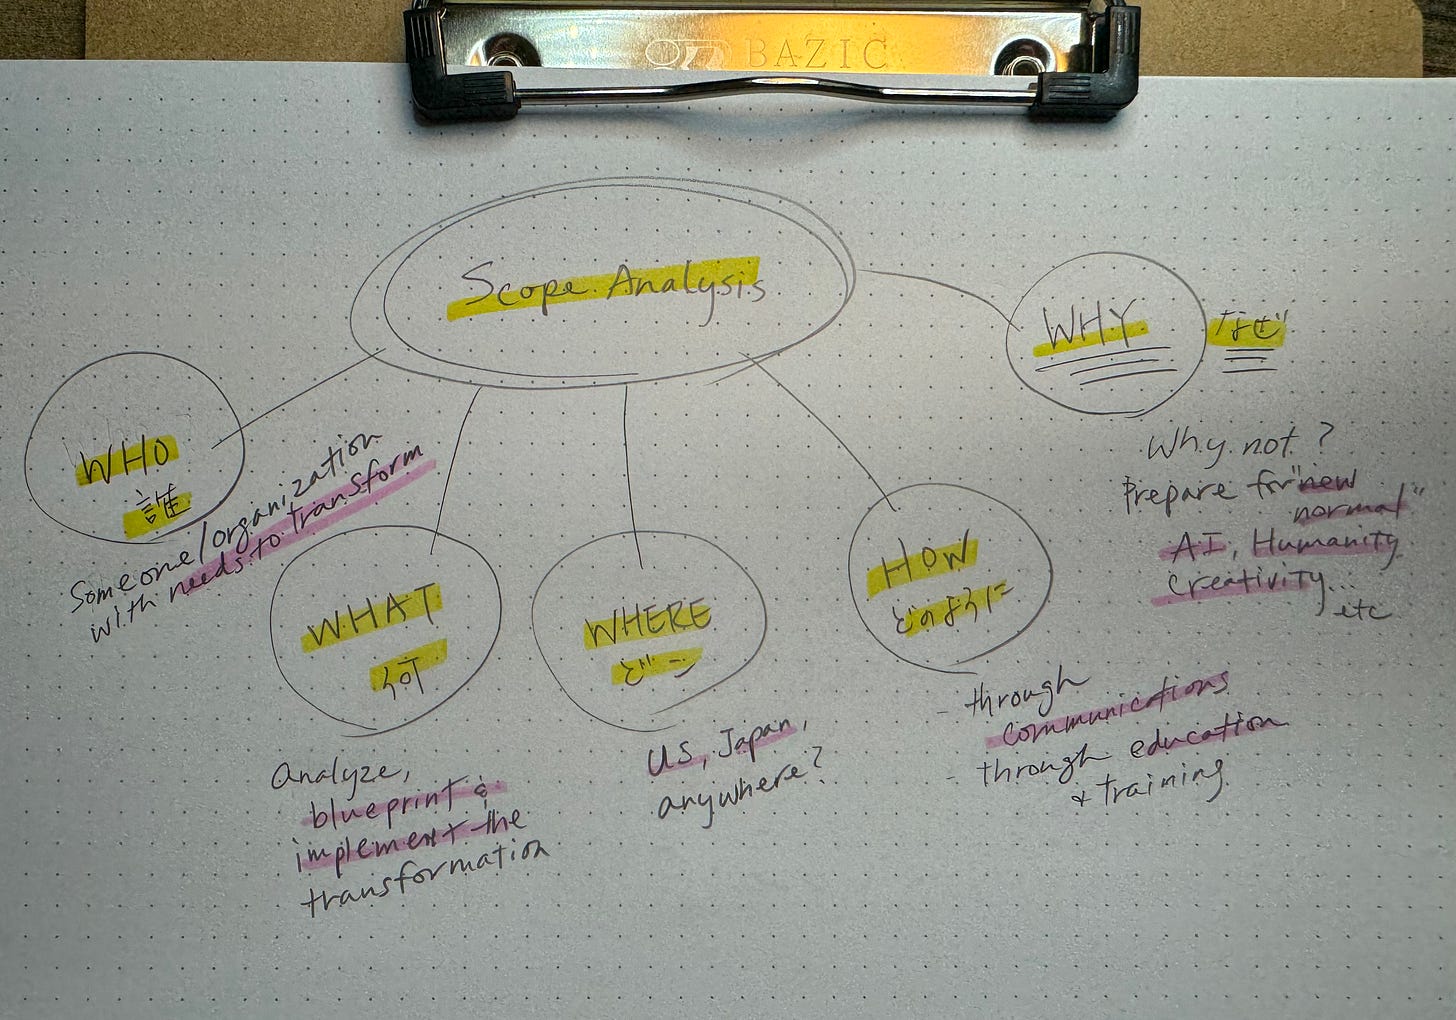 BAZIC
Scope Analysis
WHO
誰
Someone/organization
with needs to transform
WHAT
何
Analyze,
blueprint &
implement the
transformation
WHERE
どこ
US, Japan,
anywhere?
HOW
どのように
- through
communications
- through education
& training
WHY
なぜ
Why not?
Prepare for "new
normal"
AI, Humanity
Creativity...
etc